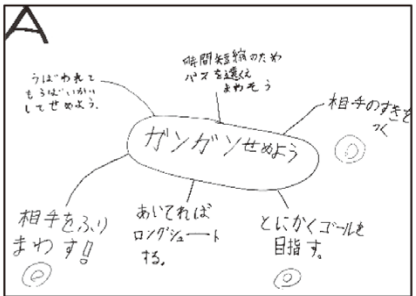 A
うばわれても
うばいかい
してせめよう。
時間短縮のため
パスを速く
まわそう
相手のすきを
つく
ガンガンせめよう
相手をふり
まわす!!
あいてれば
ロングシュート
する。
とにかくゴールを
目指す。